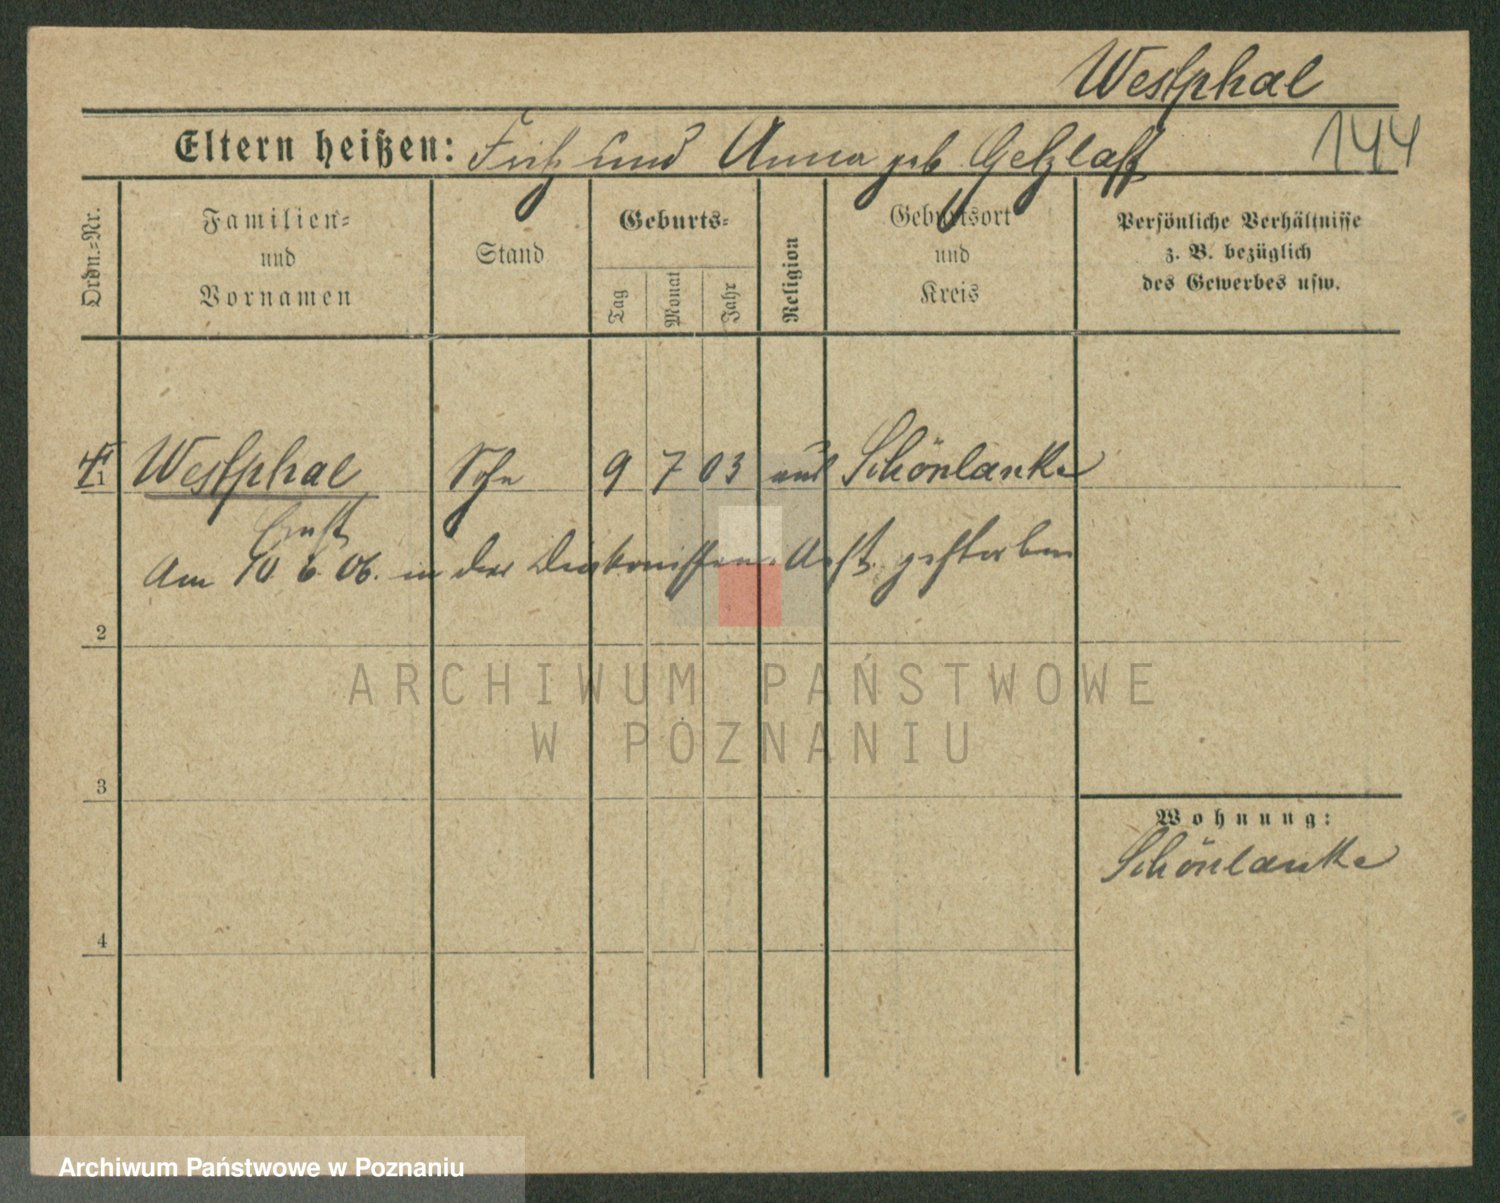 Westphal
Eltern heißen: Fritz und Anna geb Getzlaff
144
Ordn.-Nr.
Familien-
und
Vornamen
Stand
Geburts-
Tag
Monat
Jahr
Religion
Geburtsort
und
Kreis
Persönliche Verhältnisse
z. B. bezüglich
des Gewerbes usw.
1 Westphal Sohn 9 7 03 Schönlanke
Ernst
Am 10 6 06. in der Diakonissen-Anst. gestorben
2
ARCHIWUM PAŃSTWOWE
W POZNANIU
3
Wohnung:
Schönlanke
4
Archiwum Państwowe w Poznaniu